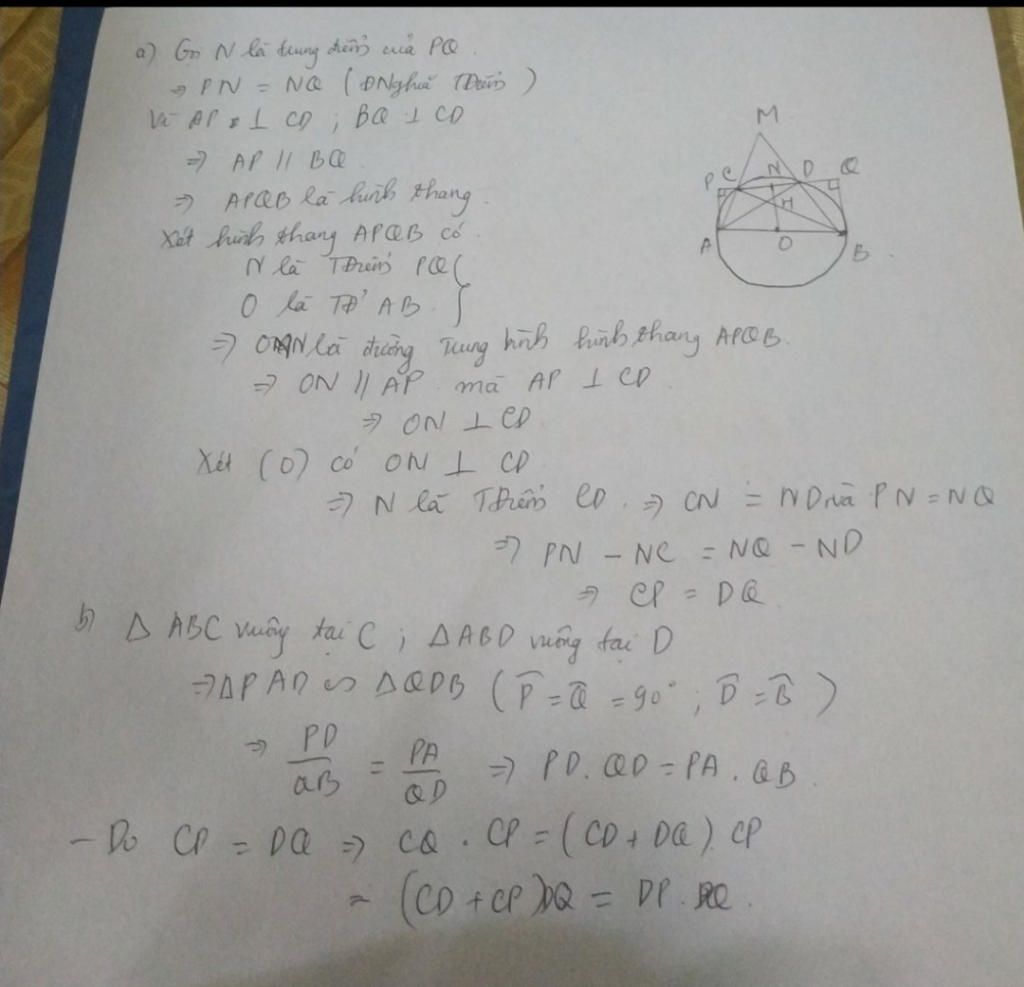 a) Gọi N là trung điểm của PQ.
⇒ PN = NQ (ĐNghĩa TĐiểm)
Vì AP ⊥ CD ; BQ ⊥ CD
⇒ AP // BQ
⇒ APQB là hình thang.
Xét hình thang APQB có
N là TĐiểm PQ
O là TĐ AB. }
⇒ ON là đường trung bình hình thang APQB.
⇒ ON // AP mà AP ⊥ CD
⇒ ON ⊥ CD
Xét (O) có ON ⊥ CD
⇒ N là TĐiểm CD. ⇒ CN = ND và PN = NQ
⇒ PN - NC = NQ - ND
⇒ CP = DQ
M
P C N D Q
H
A O B
b) Δ ABC vuông tại C ; ΔABD vuông tại D
⇒ ΔPAD ∽ ΔQDB (P̂ = Q̂ = 90° ; D̂ = B̂)
⇒ PD/QB = PA/QD ⇒ PD. QD = PA. QB.
- Do CP = DQ ⇒ CQ . CP = (CD + DQ). CP
= (CD + CP)DQ = DP. DQ.